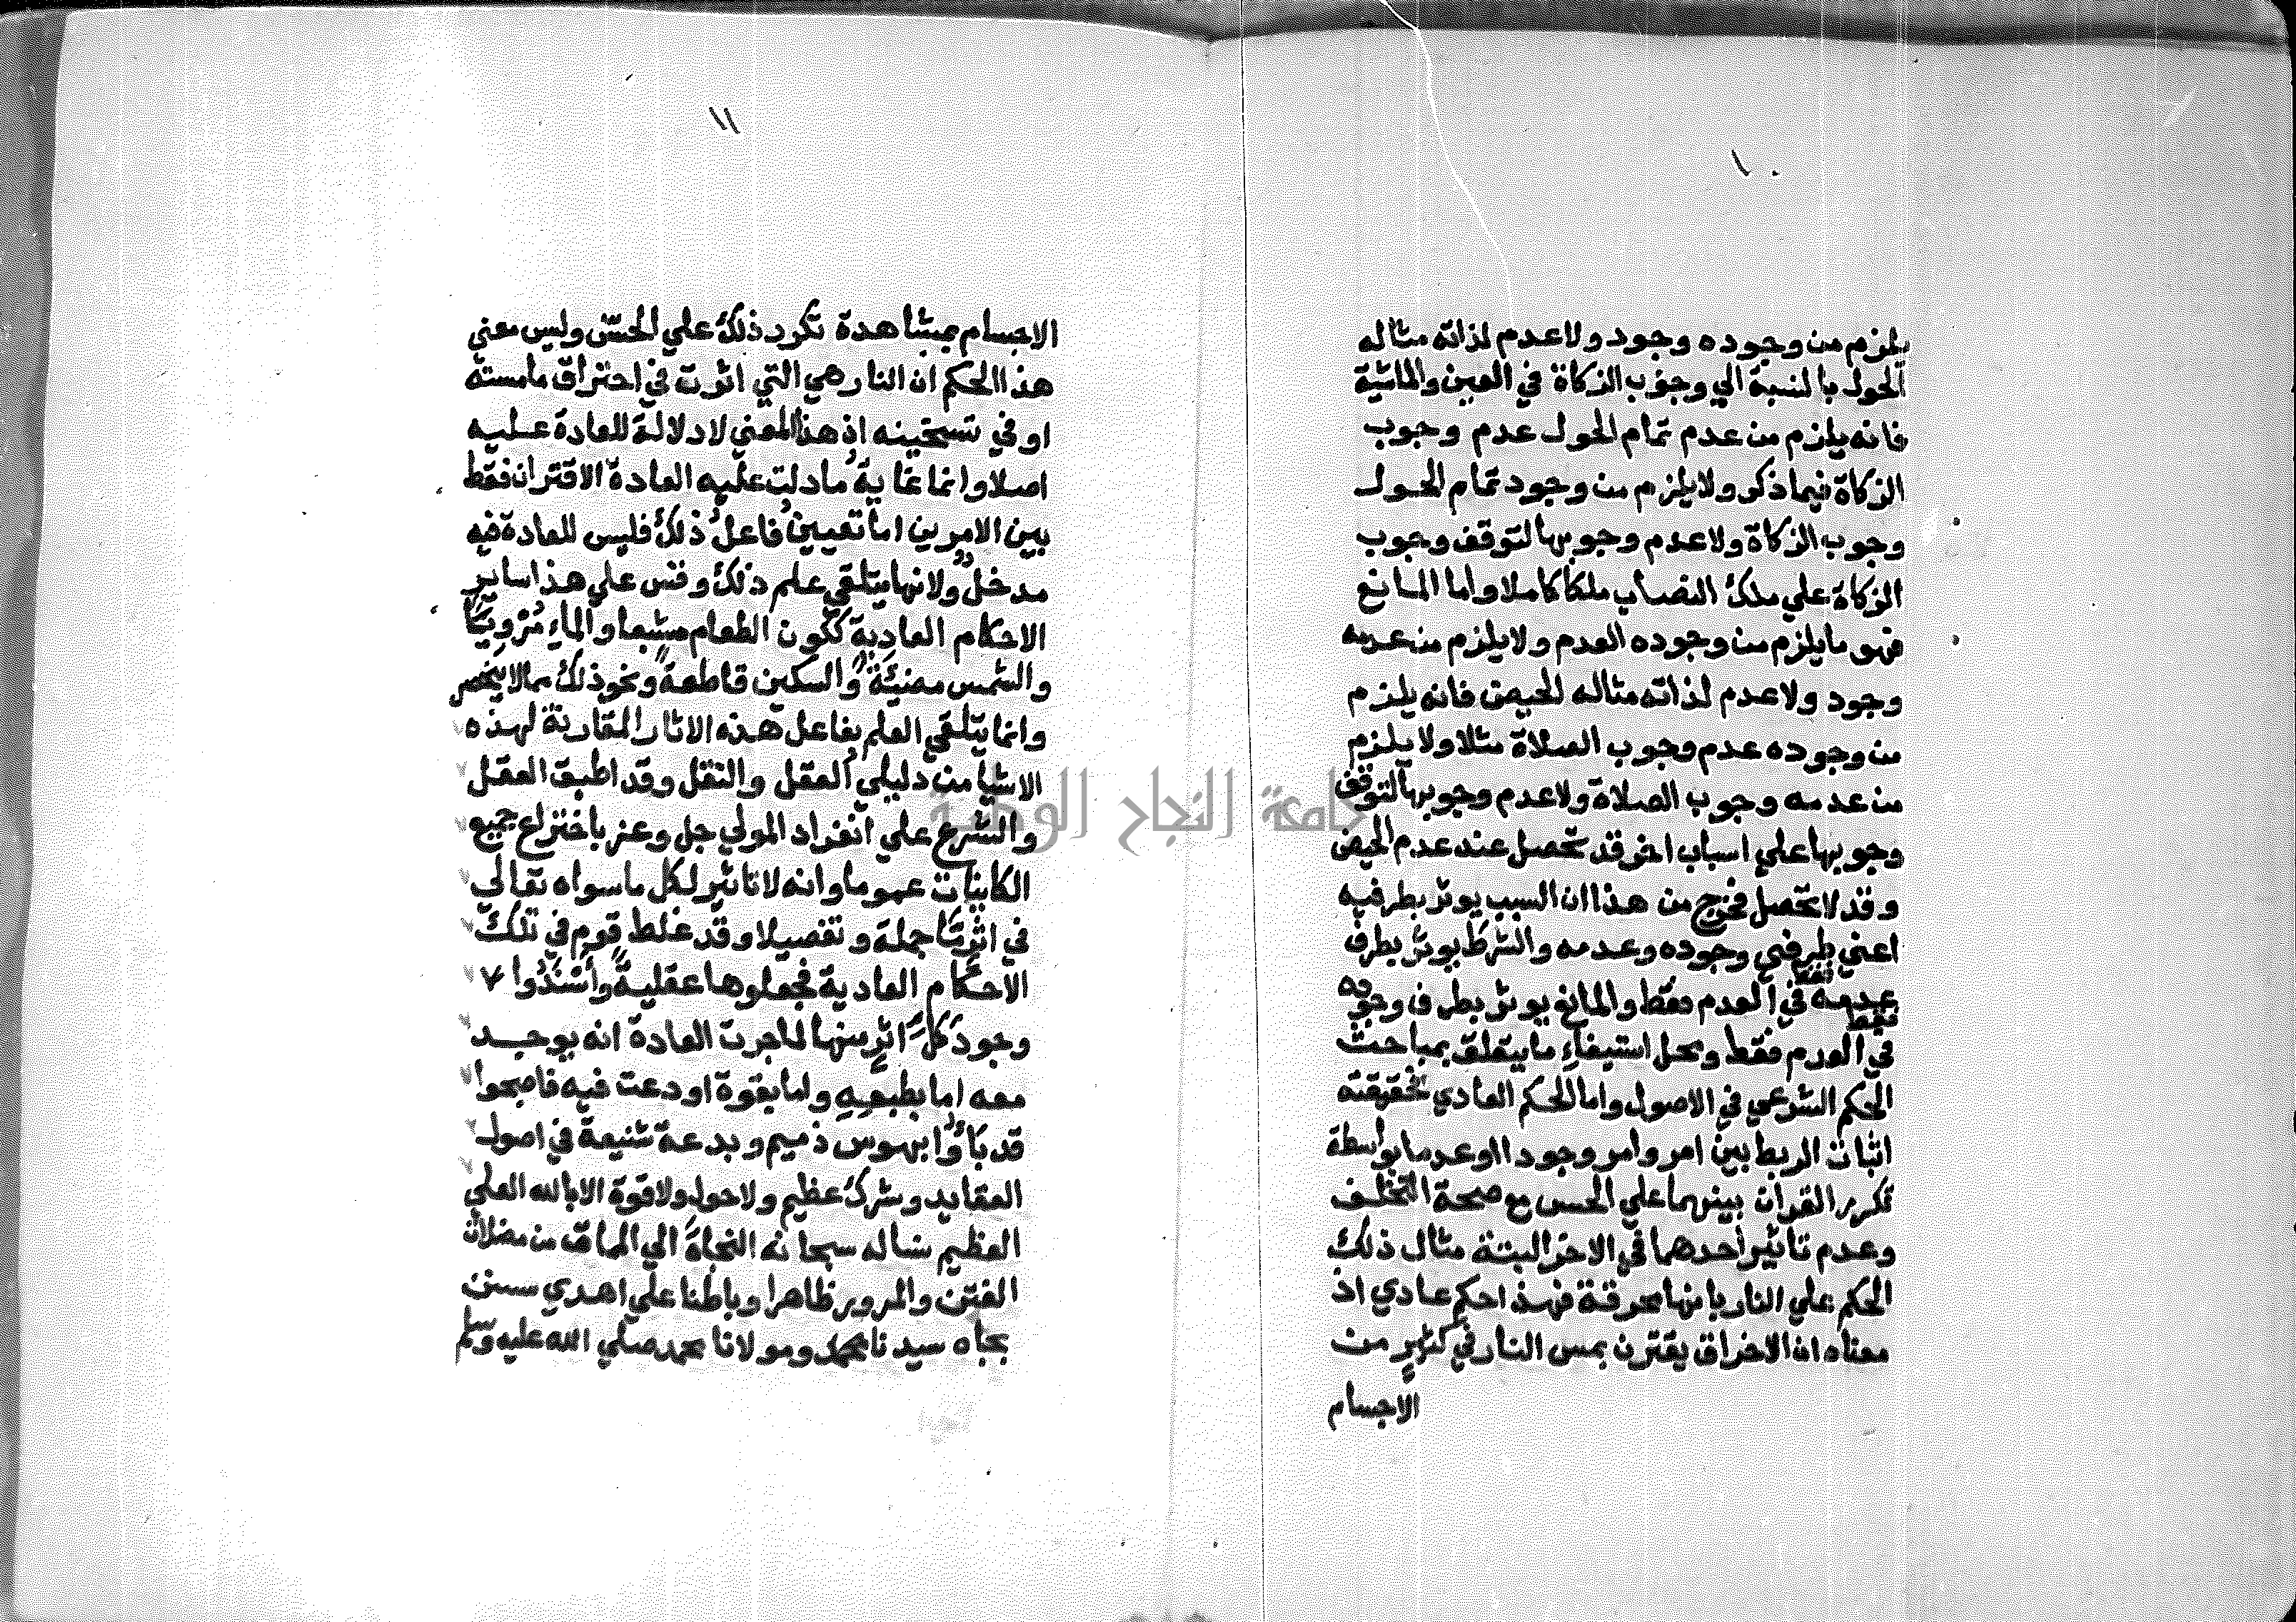 ١٠
يلزم من وجوده وجود ولاعدم لذاته مثاله
الحول بالنسبة الي وجوب الزكاة في العين والماشية
فانه يلزم من عدم تمام الحول عدم وجوب
الزكاة فيما ذكر ولا يلزم من وجود تمام الحول
وجوب الزكاة ولا عدم وجوبها لتوقف وجوب
الزكاة علي ملك النصاب ملكا كاملا واما المانع
فهو ما يلزم من وجوده العدم ولا يلزم من عدمه
وجود ولا عدم لذاته مثاله الحيض فانه يلزم
من وجوده عدم وجوب الصلاة مثلا ولا يلزم
من عدمه وجوب الصلاة ولا عدم وجوبها لتوقف
وجوبها علي اسباب اخر قد تحصل عند عدم الحيض
وقد لا تحصل فخرج من هذا ان السبب يوثر بطرفيه
اعني طرفي وجوده وعدمه والشرط يوثر بطرف
عدمه فقط في العدم فقط والمانع يوثر بطرف وجوده
فقط
في العدم فقط ومحل استيفاء ما يتعلق بمباحث
الحكم الشرعي في الاصول واما الحكم العادي فحقيقته
اثبات الربط بين امر وامر وجودا او عدما بواسطة
تكرر القران بينهما علي الحس مع صحة التخلف
وعدم تاثير احدهما في الاخر البتة مثال ذلك
الحكم علي النار بانها محرقة فهذا حكم عادي اذ
معناه ان الاحراق يقترن بمس النار في كثير من
الاجسام
١١
الاجسام بمشاهدة تكرر ذلك علي الحس وليس معني
هذا الحكم ان النار هي التي اثرت في احتراق ما مسته
او في تسخينه اذ هذا المعني لا دلالة للعادة عليه
اصلا وانما غاية ما دلت عليه العادة الاقتران فقط
بين الامرين اما تعيين فاعل ذلك فليس للعادة فيه
مدخل ولا منها يتلقي علم ذلك وقس علي هذا ساير
الاحكام العادية ككون الطعام مشبعا والماء مرويا
والشمس مضيئة والسكين قاطعة ونحو ذلك مما لا ينحصر
وانما يتلقي العلم بفاعل هذه الاثار المقارنة لهذه
الاشيا من دليلي العقل والنقل وقد اطبق العقل
والشرع علي انفراد المولي جل وعز باختراع جميع
الكاينات عموما وانه لا تاثير لكل ما سواه تعالي
في اثر ما جملة وتفصيلا وقد غلط قوم في تلك
الاحكام العادية فجعلوها عقلية وأسندوا
وجود كل اثر منها لما جرت العادة انه يوجد
معه اما بطبعه واما بقوة اودعت فيه فاصبحوا
قد باؤا بهوس ذميم وبدعة شنيعة في اصول
العقايد وشرك عظيم ولا حول ولا قوة الا بالله العلي
العظيم نساله سبحانه النجاة الي الممات من مضلات
الفتن والمرور ظاهرا وباطنا علي اهدي سنن
بجاه سيدنا محمد ومولانا محمد صلي الله عليه وسلم
جامعة النجاح الوطنية